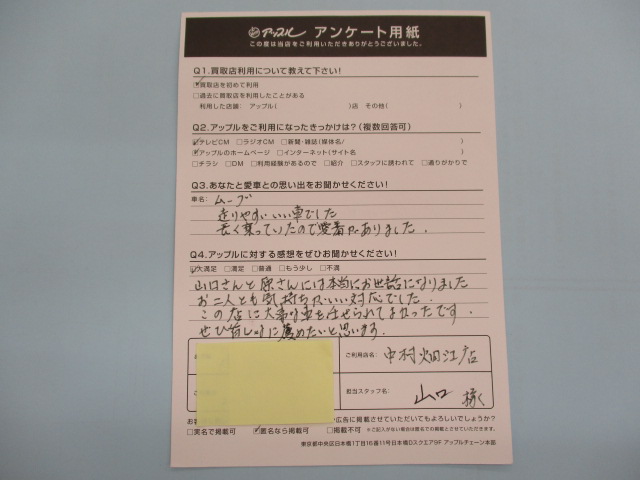 アップル アンケート用紙
この度は当店をご利用いただきありがとうございました。
Q1.買取店利用について教えて下さい!
□買取店を初めて利用
□過去に買取店を利用したことがある
利用した店舗: アップル( )店 その他( )
Q2.アップルをご利用になったきっかけは?(複数回答可)
□テレビCM □ラジオCM □新聞・雑誌(媒体名/ )
□アップルのホームページ □インターネット(サイト名 )
□チラシ □DM □利用経験があるので □紹介 □スタッフに誘われて □通りがかりで
Q3.あなたと愛車との思い出をお聞かせください!
車名: ムーブ
走りやすい いい車でした
長く乗っていたので愛着がありました。
Q4.アップルに対する感想をぜひお聞かせください!
□大満足 □満足 □普通 □もう少し □不満
山口さんと原さんには本当にお世話になりました
お二人とも気持ちいい対応でした。
この店に大事な車を任せられてよかったです。
ぜひ に薦めたいと思います。
ご利用店名: 中村畑江店
担当スタッフ名: 山口
広告に掲載させていただいてもよろしいでしょうか?
□実名で掲載可 □匿名なら掲載可 □掲載不可 ※ご記入がない場合は匿名での掲載とさせていただきます。
東京都中央区日本橋1丁目16番11号日本橋Dスクエア9F アップルチェーン本部